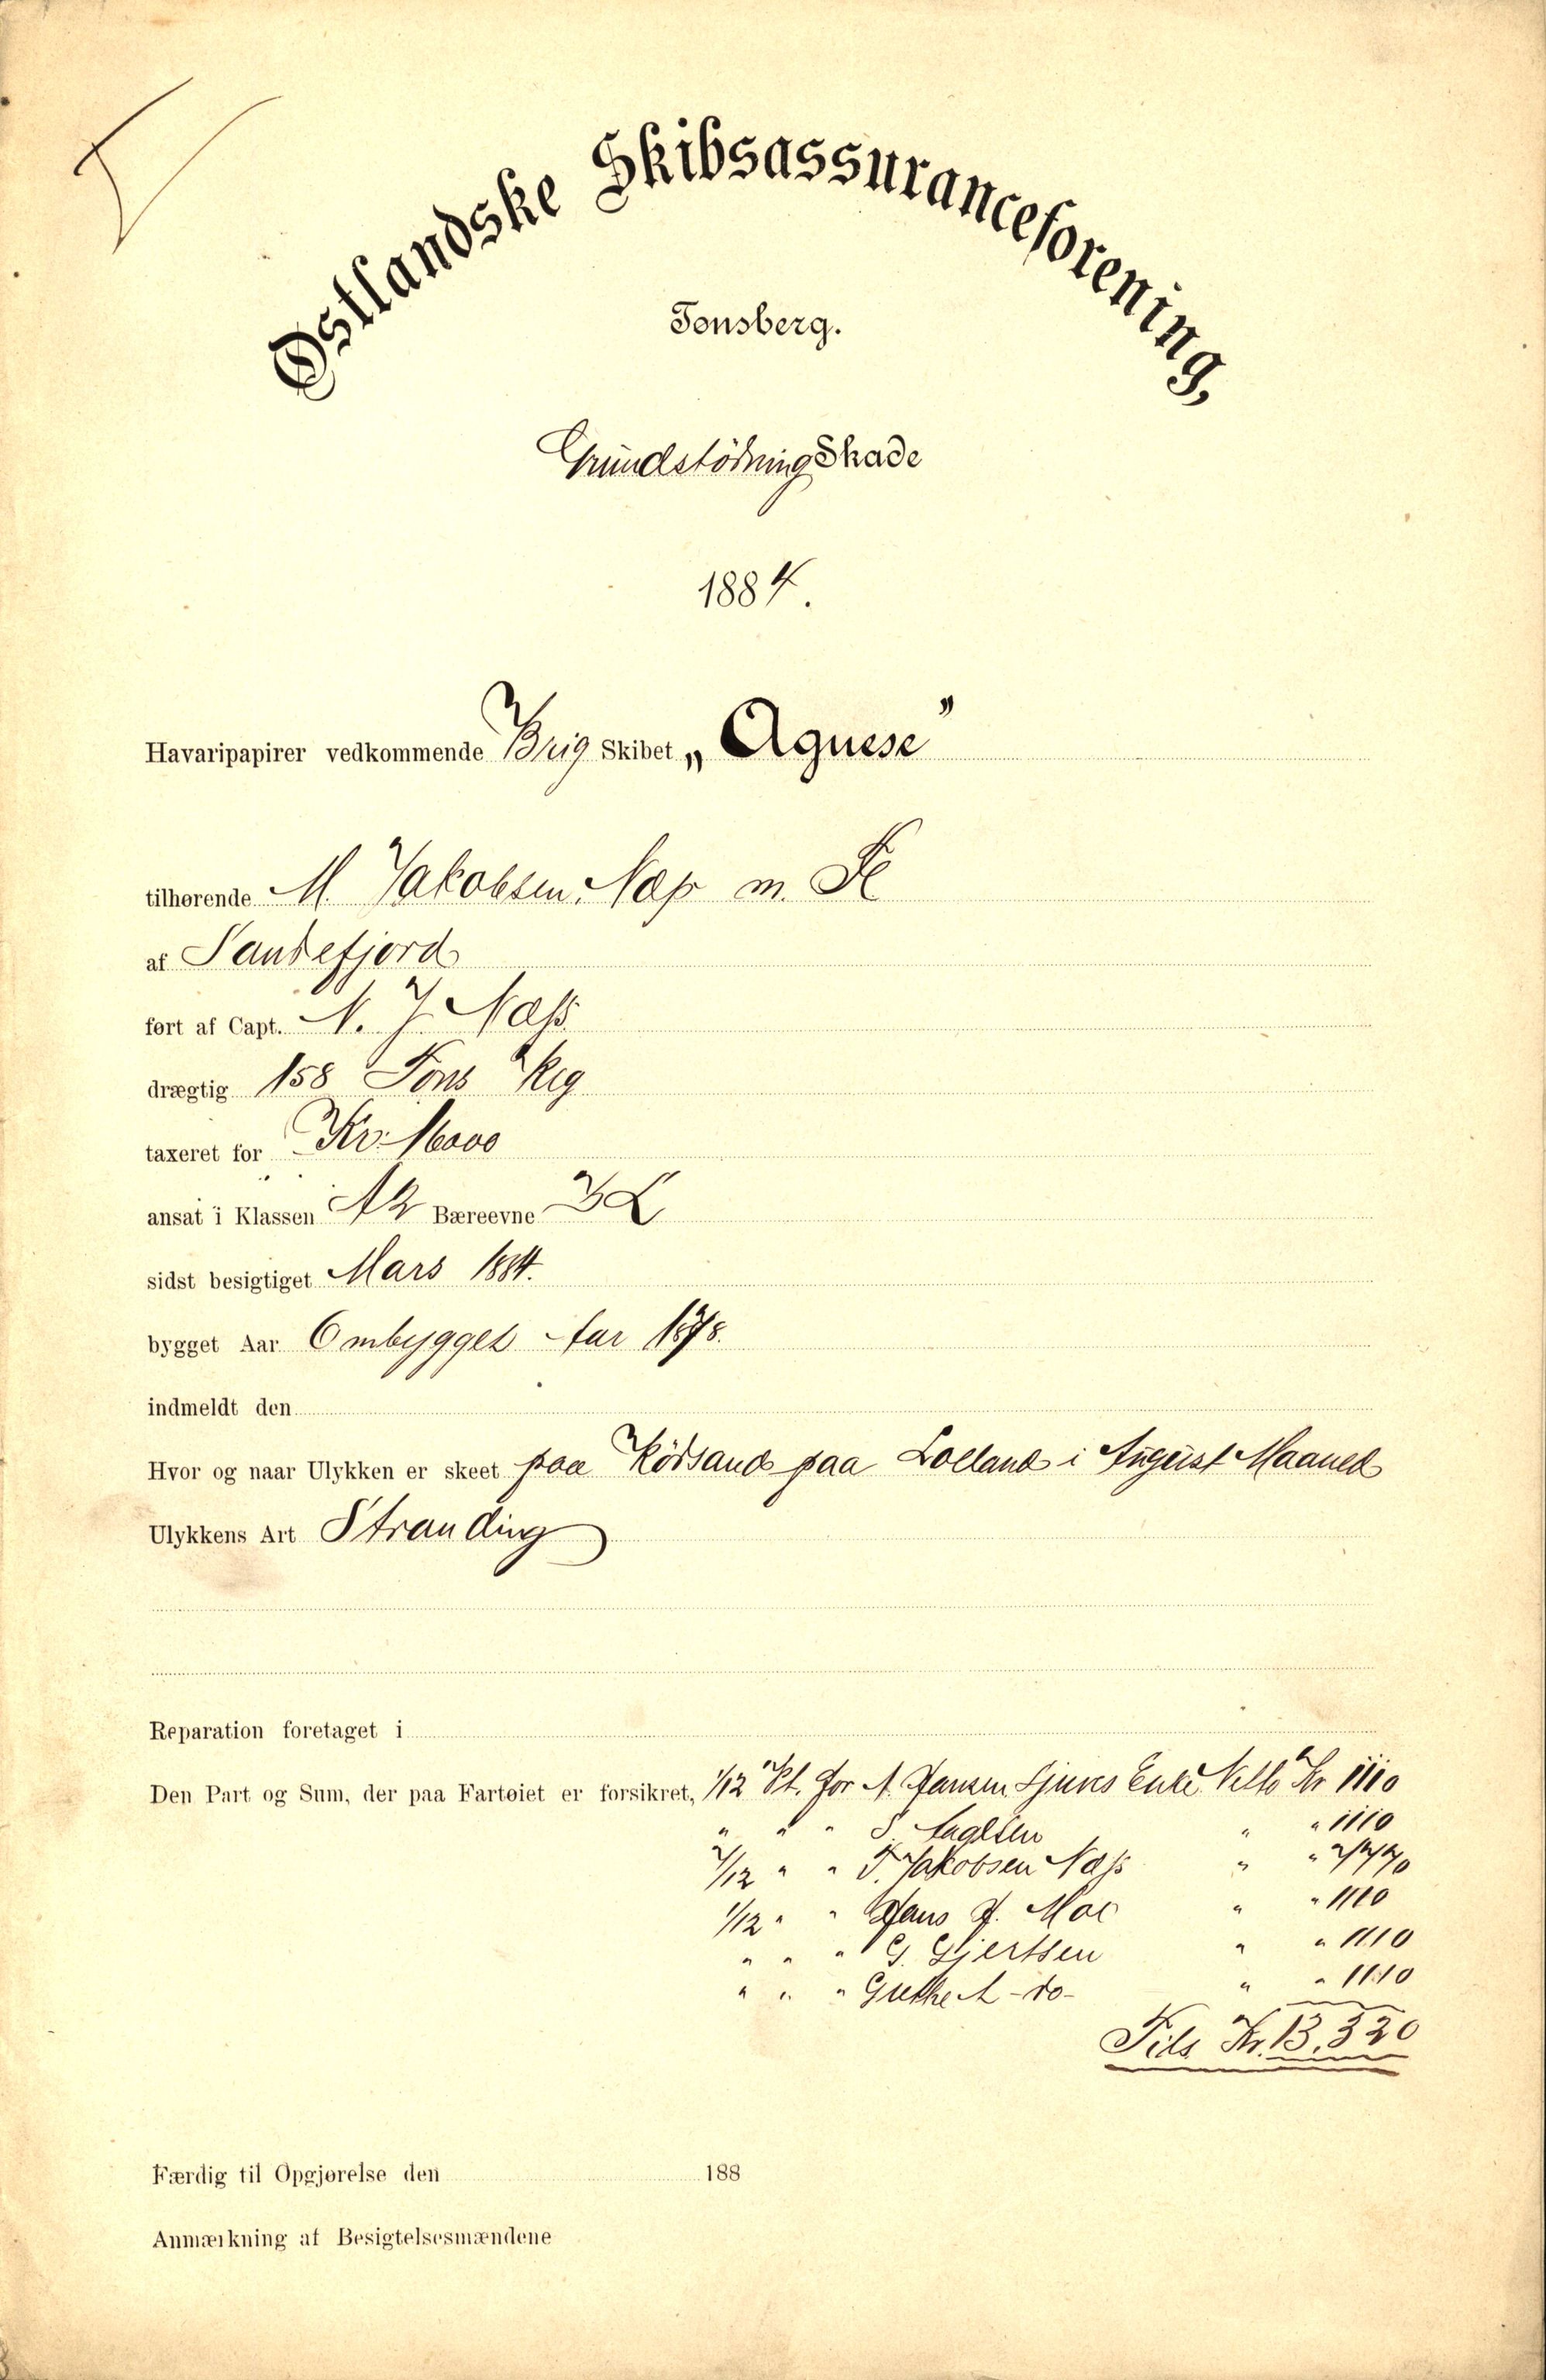 Østlandske Skibsassuranceforening,
Tønsberg.
Grundstödning Skade
1884.
Havaripapirer vedkommende Brig Skibet „Agnese"
tilhørende M. Jakobsen Næs m. Fl
af Sandefjord
ført af Capt. N. J. Næss
drægtig 158 Tons Reg
taxeret for Kr. 16000
ansat i Klassen A2 Bæreevne 3 L
sidst besigtiget Mars 1884.
bygget Aar Ombygget Aar 1878.
indmeldt den
Hvor og naar Ulykken er skeet paa Rödsand paa Lolland i August Maaned
Ulykkens Art Stranding
Reparation foretaget i
Den Part og Sum, der paa Fartøiet er forsikret, 1/12 Pt. for A. Hansen Enke Netto Kr 1110
" " " S. " " 1110
" " J. Jakobsen Næss " "
1/12 " " Hans H. Moe " " 1110
" " " G. Gjertsen " " 1110
" " " Grethe A -do- " " 1110
Tils. Kr. 13.320
Færdig til Opgjørelse den 188
Anmærkning af Besigtelsesmændene